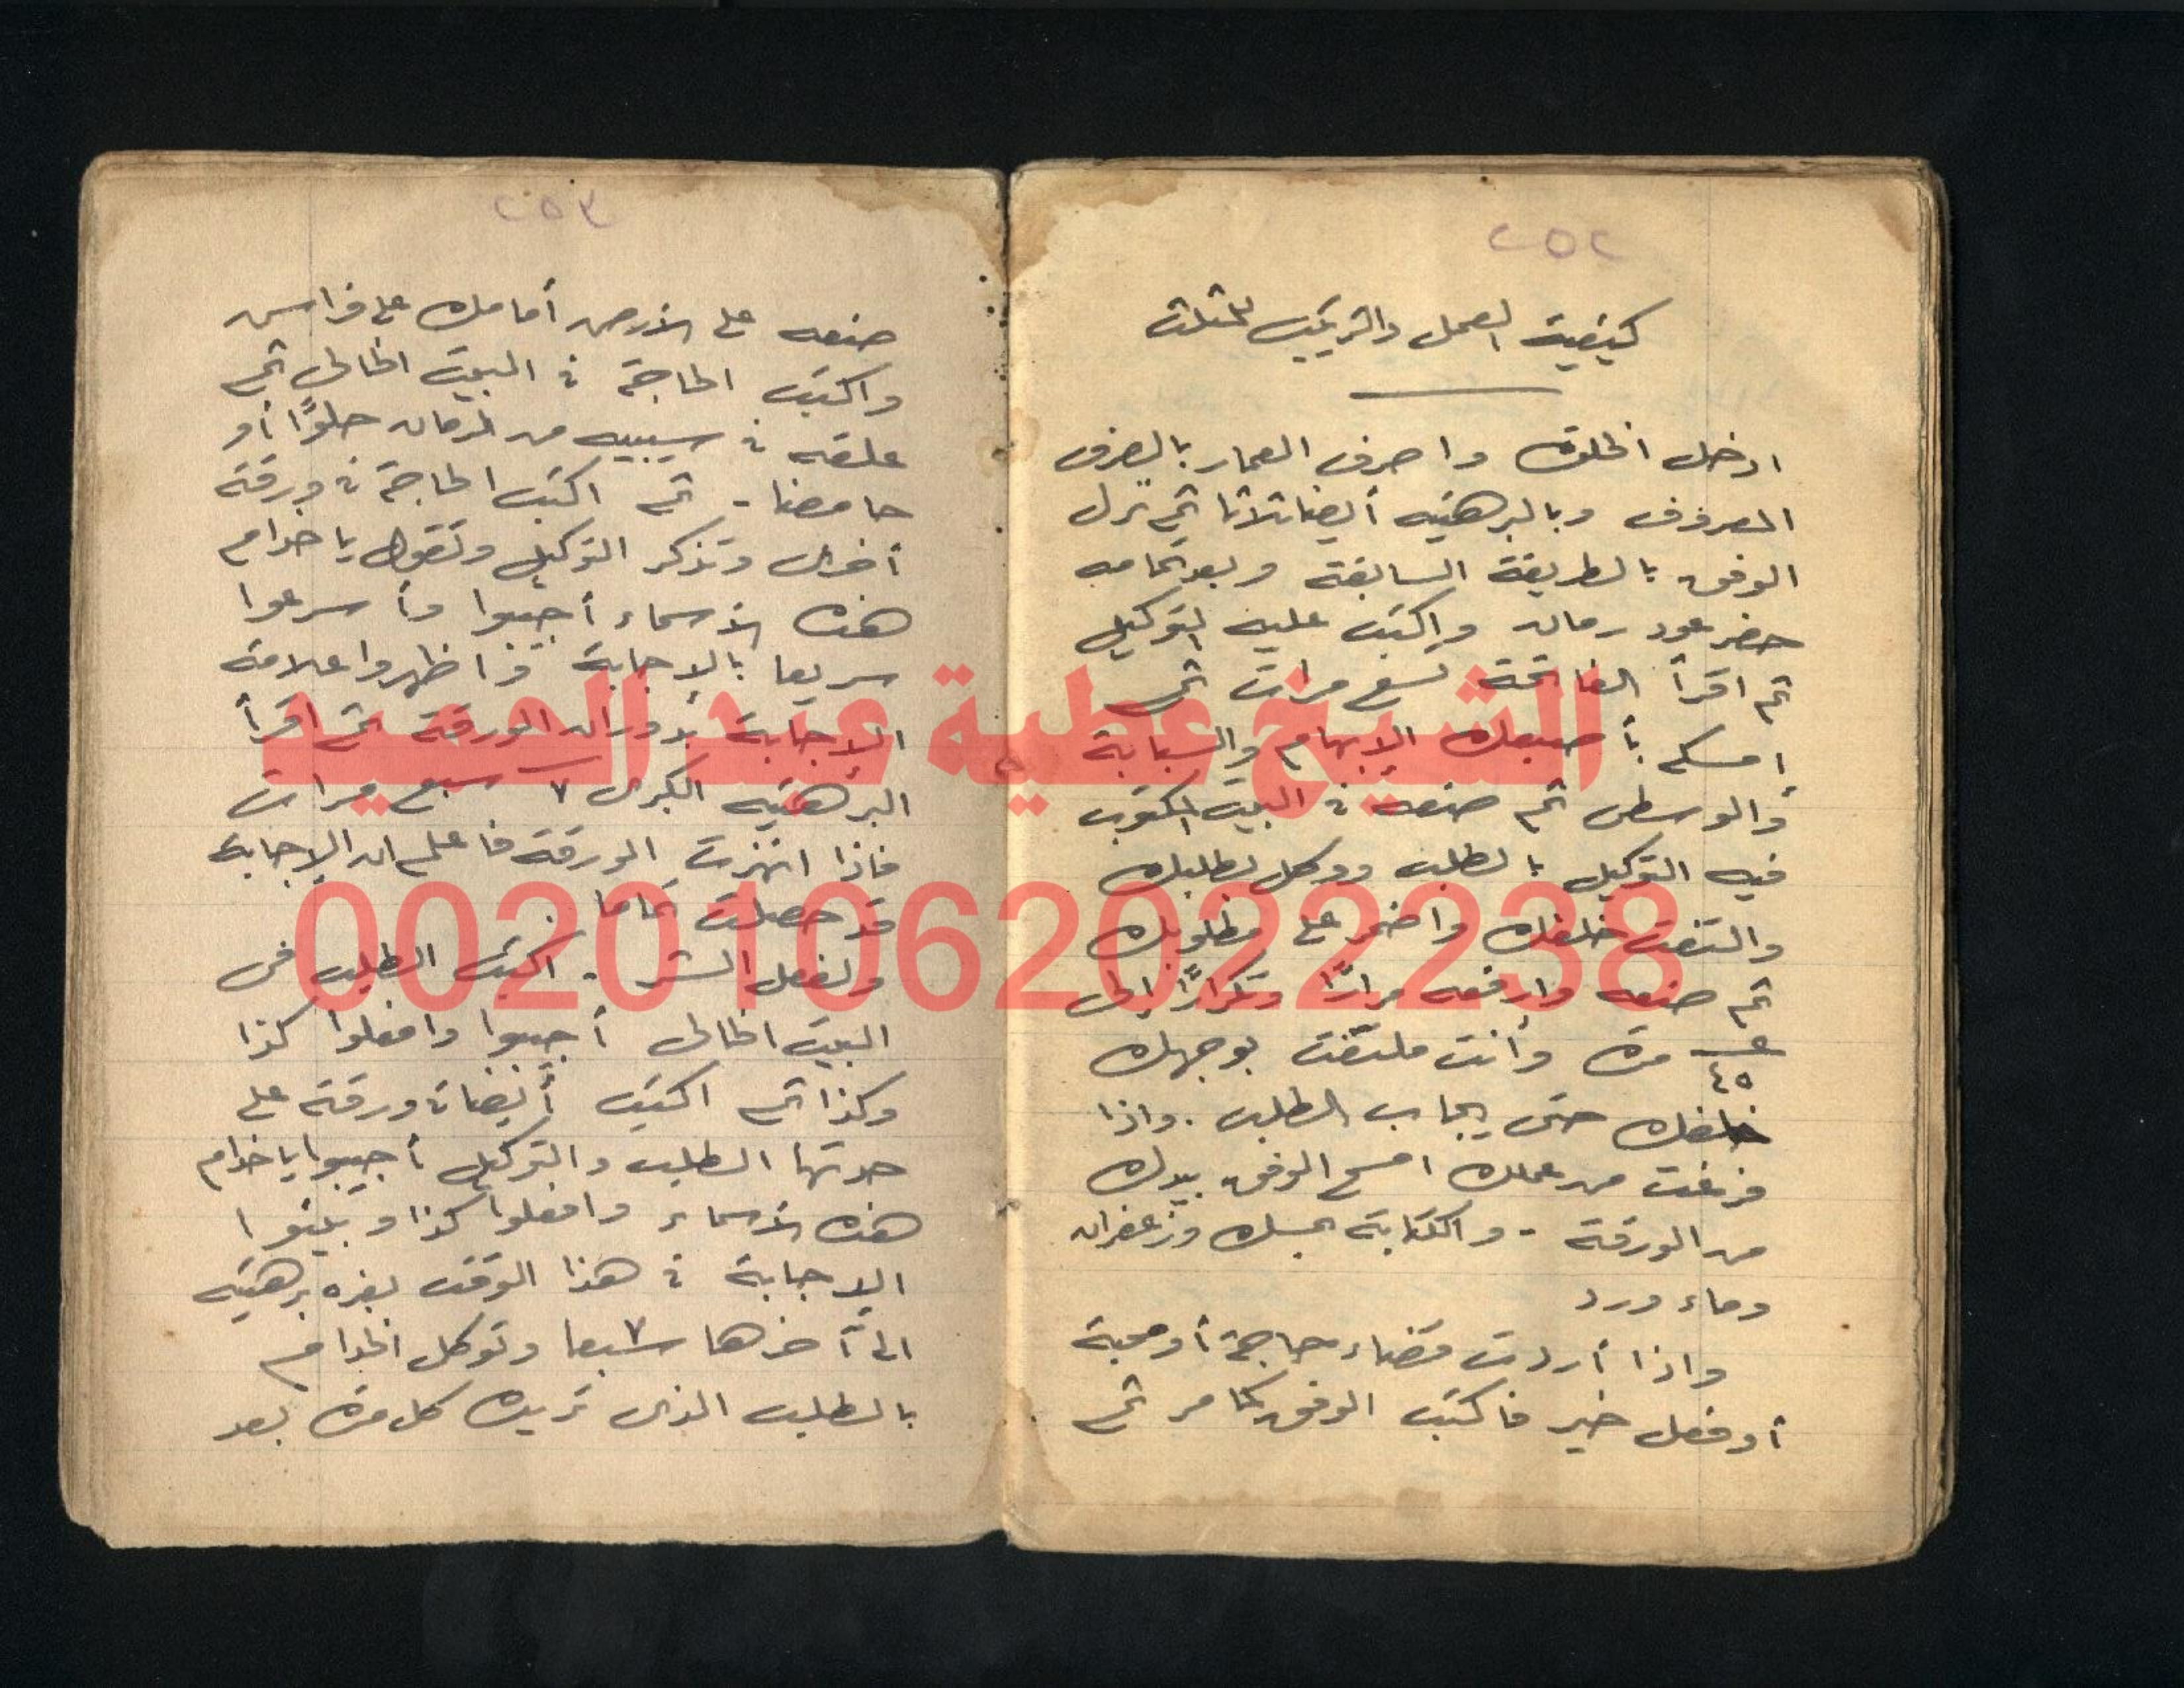 ٢٥٢
كيفية العمل والتركيب للمثلث
ادخل الخلوة واصرف العمار بالصرف
المعروف وبالبرهتيه أيضا ثلاثا ثم نزل
الوفق بالطريقة السابقة وبعد تمامه
حضر عود رمان واكتب عليه التوكيل
ثم اقرأ الفاتحة تسع مرات ثم
امسكه بأصبعك الإبهام والسبابة
والوسطى ثم ضعه في البيت المكتوب
فيه التوكيل بالطلب ووكل بطلبك
والتفت خلفك واضمر على مطلوبك
ثم ضعه وارفعه مرارًا وتكرارًا إلى
٤٥ مرة وأنت ملتفت بوجهك
خلفك حتى يجاب الطلب. واذا
فرغت من عملك امسح الوفق بيدك
من الورقة - والكتابة بمسك وزعفران
وماء ورد
واذا أردت قضاء حاجة أو محبة
أو فعل خير فاكتب الوفق كما مر ثم
٢٥٣
ضعه على الأرض أمامك على فراش
واكتب الحاجة في البيت الخالى ثم
علقه في سيبيه من الرمان حلوًا أو
حامضا - ثم اكتب الحاجة في ورقة
أخرى وتذكر التوكيل وتقول يا خدام
هذه الأسماء أجيبوا وأسرعوا
سريعا بالإجابة واظهروا علامة
الإجابة بدوران الورقة ثم اقرأ
البرهتيه الكبرى ٧ سبع مرات
فاذا اهتزت الورقة فاعلم ان الإجابة
قد حصلت تماما.
ولفعل الشر - اكتب الطلب فى
البيت الخالى أجيبوا وافعلوا كذا
وكذا ثم اكتب أيضا في ورقة على
حدتها الطلب والتوكيل أجيبوا يا خدام
هذه الأسماء وافعلوا كذا وبينوا
الإجابة في هذا الوقت بعزة برهتيه
الى آخرها سبعا ٧ وتوكل الخدام
بالطلب الذى تريده كل مرة بعد
الشيخ عطية عبد الحميد
00201062022238